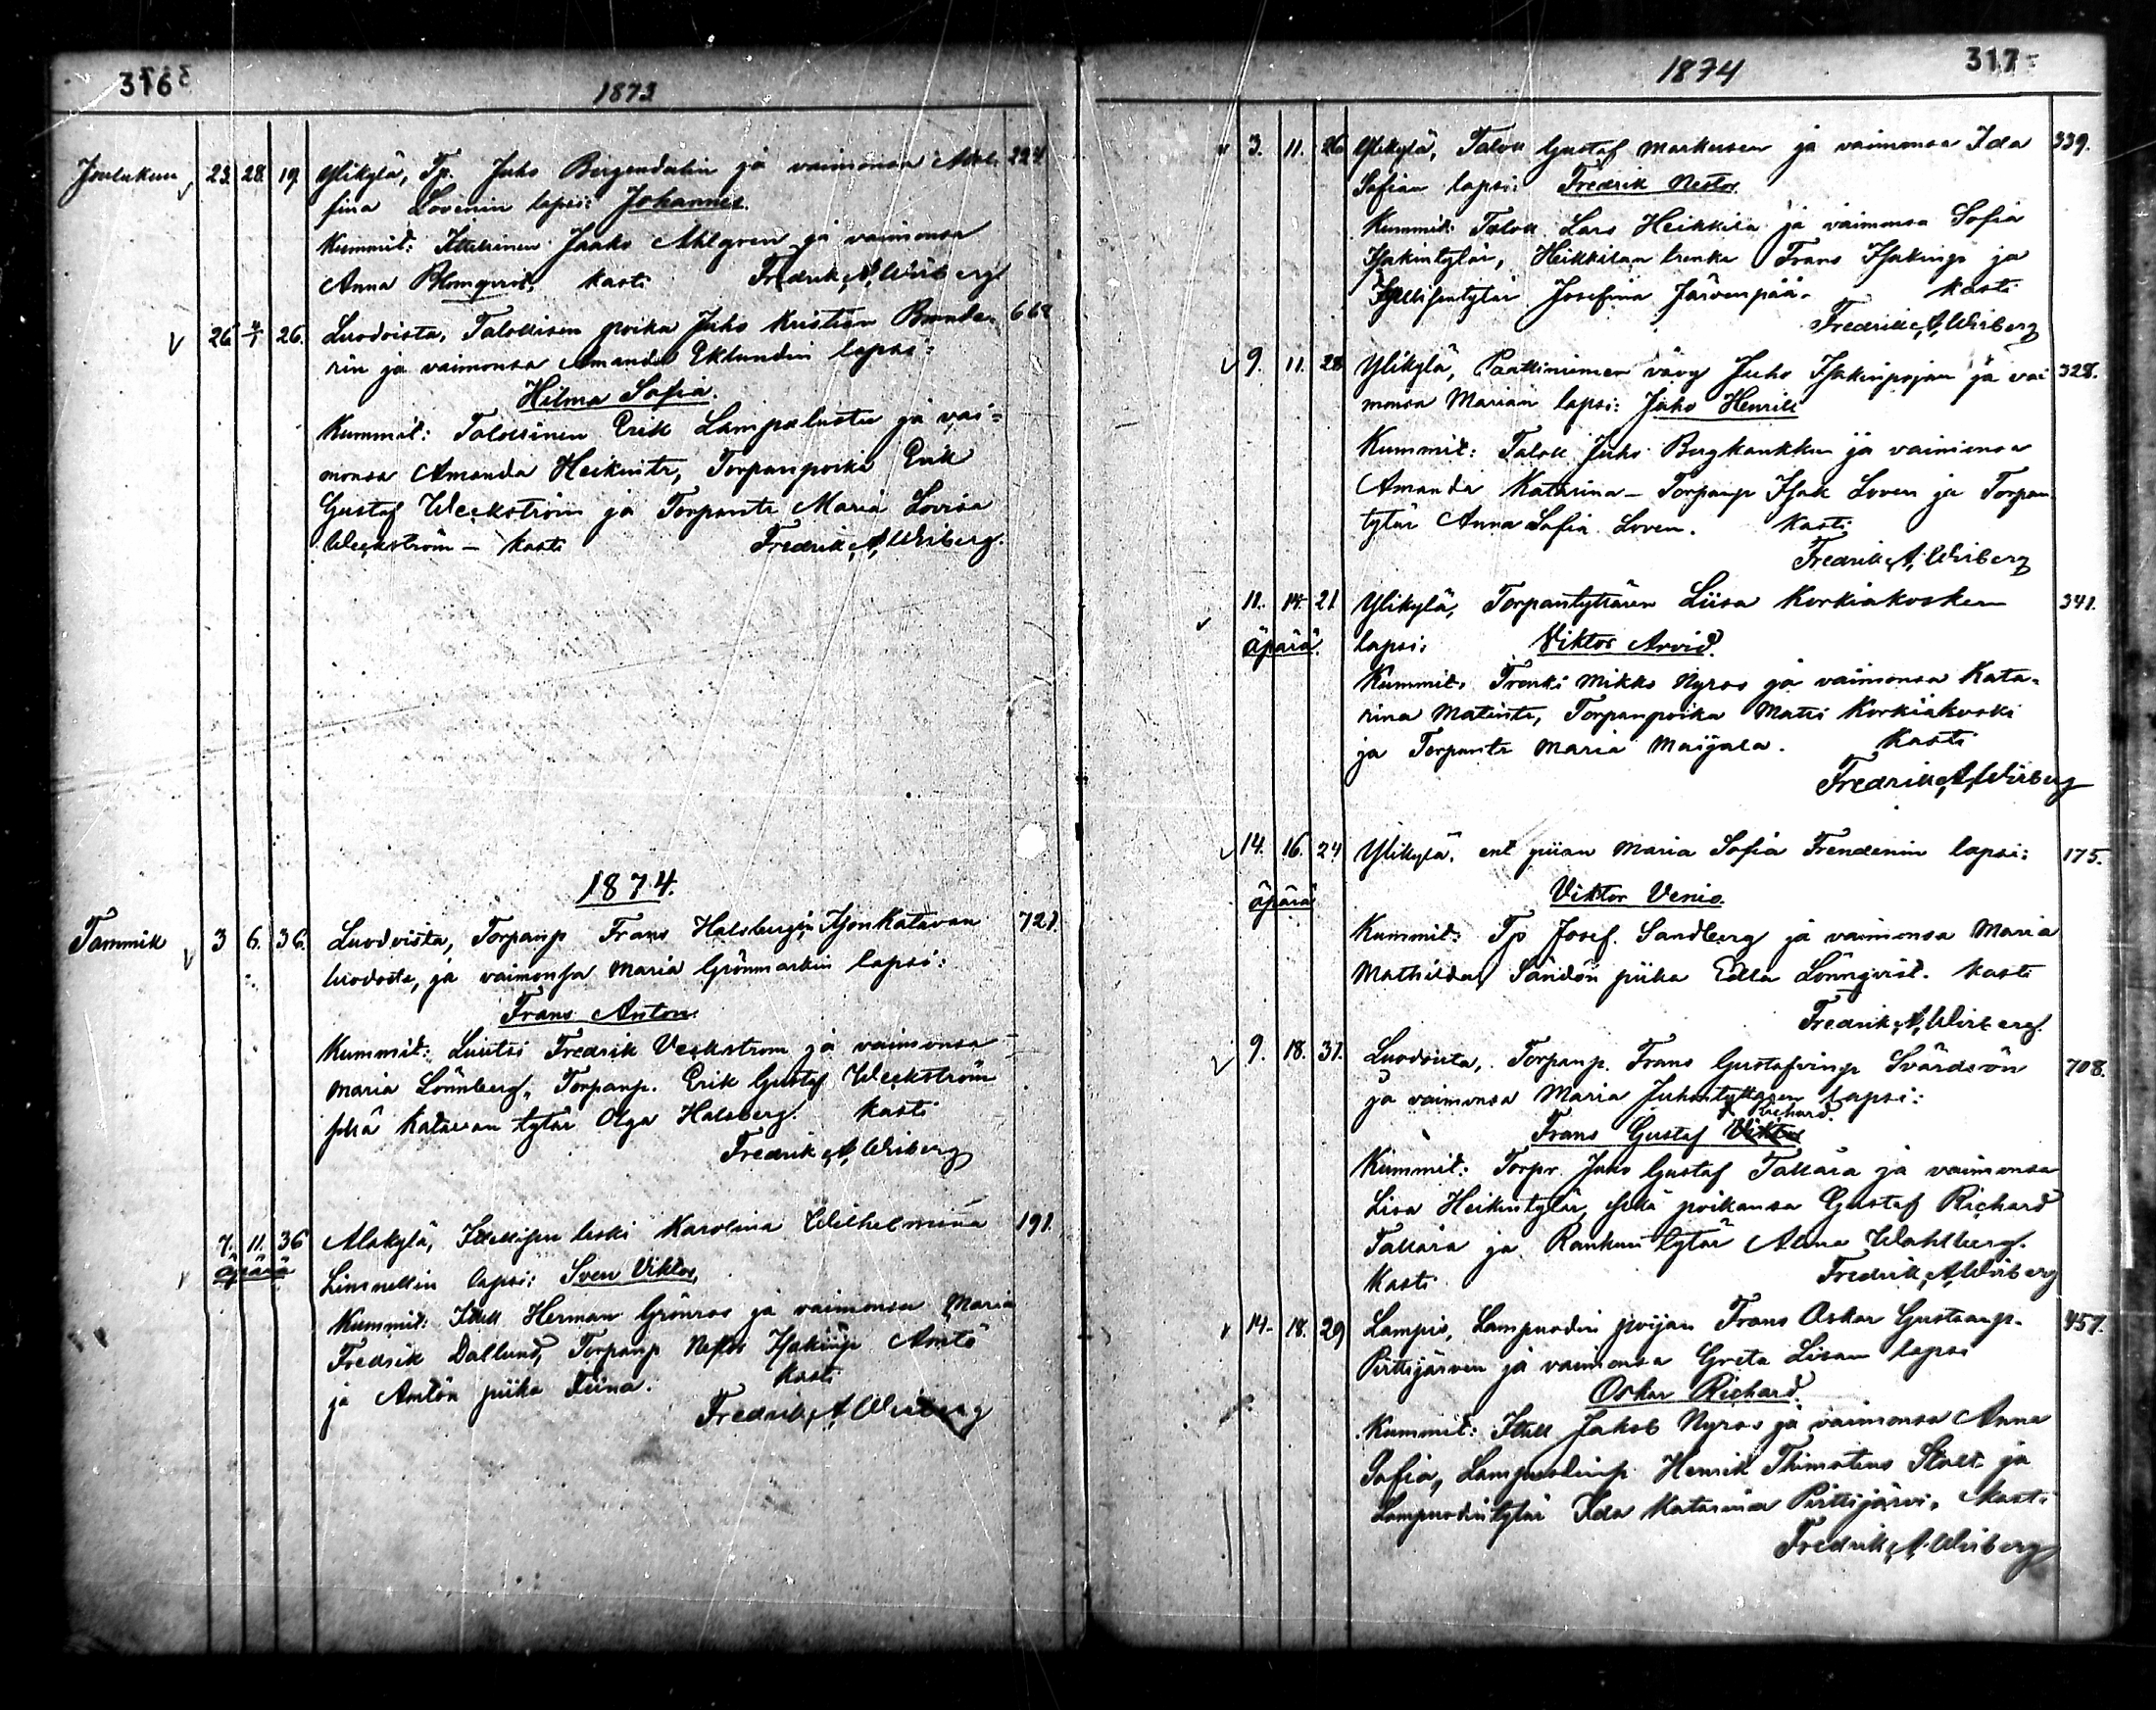 316
1873
Joulukuu 23 28 19 Ylikylä, Tp. Juho Bergendalin ja vaimonsa Adol 224
fina Lovenin lapsi: Johannes.
Kummit: Itsellinen Jaako Ahlgren ja vaimonsa
Anna Blomqvist, kasti Fredrik A. Wirberg
26 4/1 26. Luodoista, Talollisen poika Juho Kristian 662
rin ja vaimonsa Amanda Eklundin lapsi:
Hilma Sofia.
Kummit: Talollinen Erik Lampaluoto ja vai=
monsa Amanda Heikintr, Torpanpoika Erik
Gustaf Weckström ja Torpantr Maria Lovisa
Weckström – kasti Fredrik A. Wirberg.
1874.
Tammik 3 6. 36. Luodoista, Torpanp Frans Halsbergin Katavan 721
luodosta, ja vaimonsa Maria Grönmarkin lapsi:
Frans Anton.
Kummit: Luutsi Fredrik Veckstrom ja vaimonsa
Maria Lönnberg, Torpanp. Erik Gustaf Weckström
sekä Katavan tytär Olga Halsberg. kasti
Fredrik A. Wirberg
7. 11. 36 Alakylä, Itsellisen leski Karolina Wilhelmina 191.
äpärä Linnellin lapsi: Sven Viktor,
Kummit: Itsell Herman Grönros ja vaimonsa Maria
Fredrik Dallund, Torpanp Isakinp Anttö
ja Antön piika Tiina. kasti
Fredrik A. Wirberg
1874
317
3. 11. 26 Ylikylä, Talon Gustaf Markusen ja vaimonsa Ida 339.
Sofian lapsi: Fredrik Nestor
Kummit: Taloll. Lars Heikkilä ja vaimonsa Sofia
Isakintytär, Heikkilän trenki Frans Isakinp ja
Itsellisentytär Josefina Järvenpää. kasti
Fredrik A. Wirberg
9. 11. 28 Ylikylä, Paatiniemen vävy Juho Isakinpojan ja vai 328.
monsa Marian lapsi: Juho Henrik
Kummit: Taloll Juho Bergkankkun ja vaimonsa
Amanda Katarina – Torpanp Isak Loven ja Torpan
tytär Anna Sofia Loven. Kasti
Fredrik A. Wirberg
11. 14. 21 Ylikylä, Torpantyttären Liisa Korkiakosken 341.
äpärä lapsi: Viktor Arvid.
Kummit: Trenki Mikko Nyros ja vaimonsa Kata=
rina Matintr, Torpanpoika Matti Korkiakoski
ja Torpantr Maria Maijala. Kasti
Fredrik A. Wirberg
14. 16. 24 Ylikylä, ent piian Maria Sofia Frendenin lapsi: 175.
äpärä Viktor Venio.
Kummit: Tp Josef Sandberg ja vaimonsa Maria
Mathilda, Sandön piika Edla Lönnqvist. kasti
Fredrik A. Wirberg.
9. 18. 31. Luodoista, Torpanp. Frans Gustafsinp Svärdsön 708.
ja vaimonsa Maria Juhontyttären lapsi:
Richard
Frans Gustaf Viktor
Kummit: Torpr. Juho Gustaf Tallära ja vaimonsa
Lisa Heikintytär, sekä poikansa Gustaf Richard
Tallära ja Rankun tytär Anna Wahlberg.
Kasti Fredrik A. Wirberg
14. 18. 29 Lampis, Lampuodin pojan Frans Oskar Gustaanp. 457.
Pirttijärven ja vaimonsa Greta Lisan lapsi
Oskar Richard.
Kummit: Itsell Jakob Nyros ja vaimonsa Anna
Sofia, Lampuodinp Henrik Thimoteus Stolt ja
Lampuodintytär Ida Katarina Pirttijärvi. Kasti
Fredrik A. Wirberg